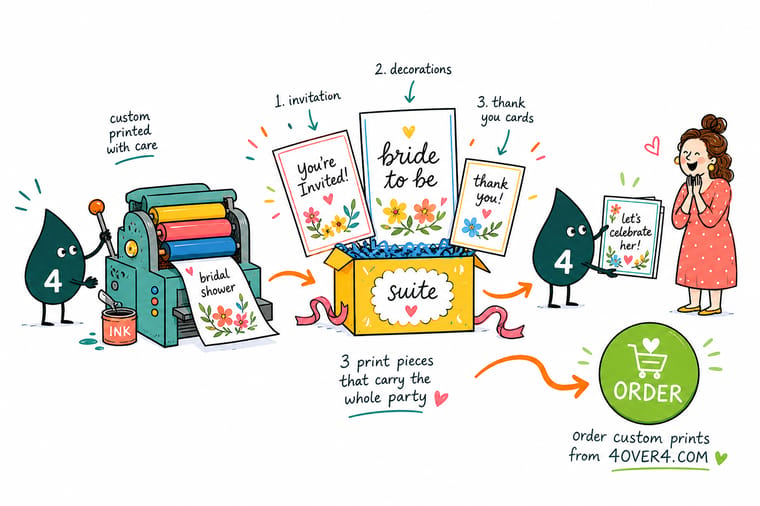 custom
printed
with care
1. invitation
2. decorations
3. thank
you cards
You're
Invited!
bride
to be
thank
you!
4
INK
bridal
shower
suite
4
let's
celebrate
her!
3 print pieces
that carry the
whole party
ORDER
order custom prints
from 4OVER4.COM